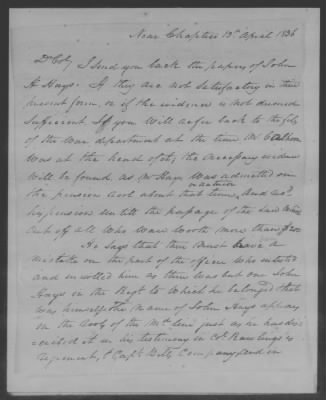 Near Chaptico 13th April 1836
Dr Col, I send you back the papers of John
H Hays. If they are not satisfactory in their
present form, or if the evidence is not deemed
sufficient If you will refer back to the files
of the War department at the time Mr Calhoun
was at the head of it, the necessary evidence
will be found, as Mr Hays was admitted on
the pension roll about that time, and
his pension untill the passage of the law
cut off all who were worth more than
He says that there must be a
mistake on the part of the officer who
and enrolled him as there was but one John
Hays in the Regt to which he belonged & that
was himself. The name of John Hays appears
in the roll of the Md line just as he has
it in his testimony in Col Rawlings's
regiment, & Capt Company, and in